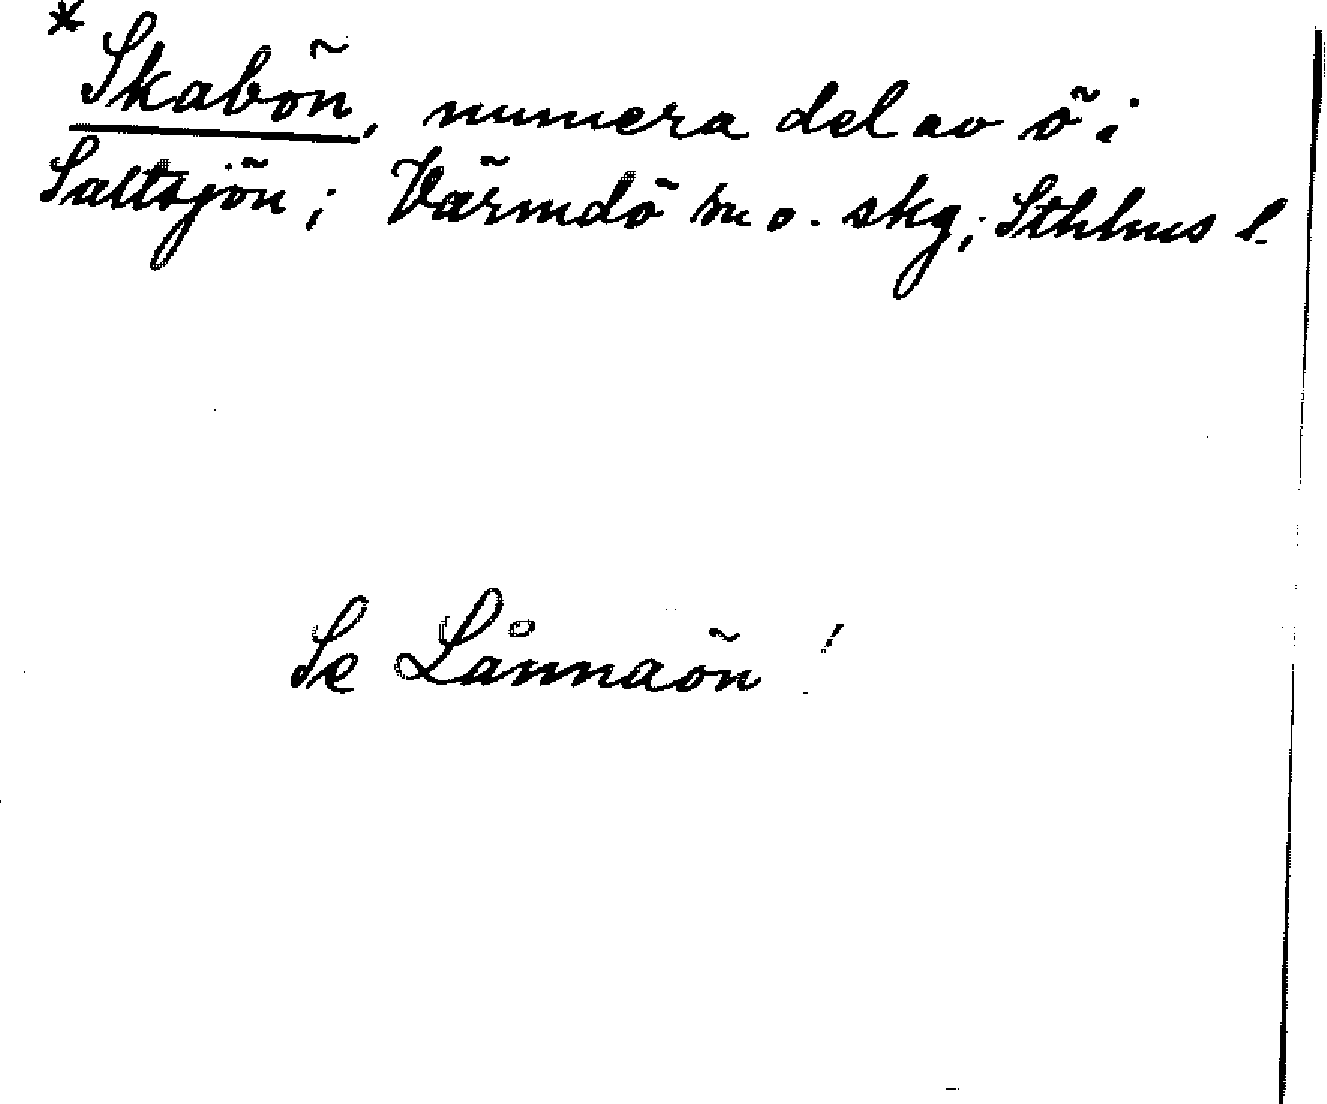 * Skabön, numera del av ö i
Saltsjön; Värmdö sn o. skg; Sthlms l.
Se Lånnaön!